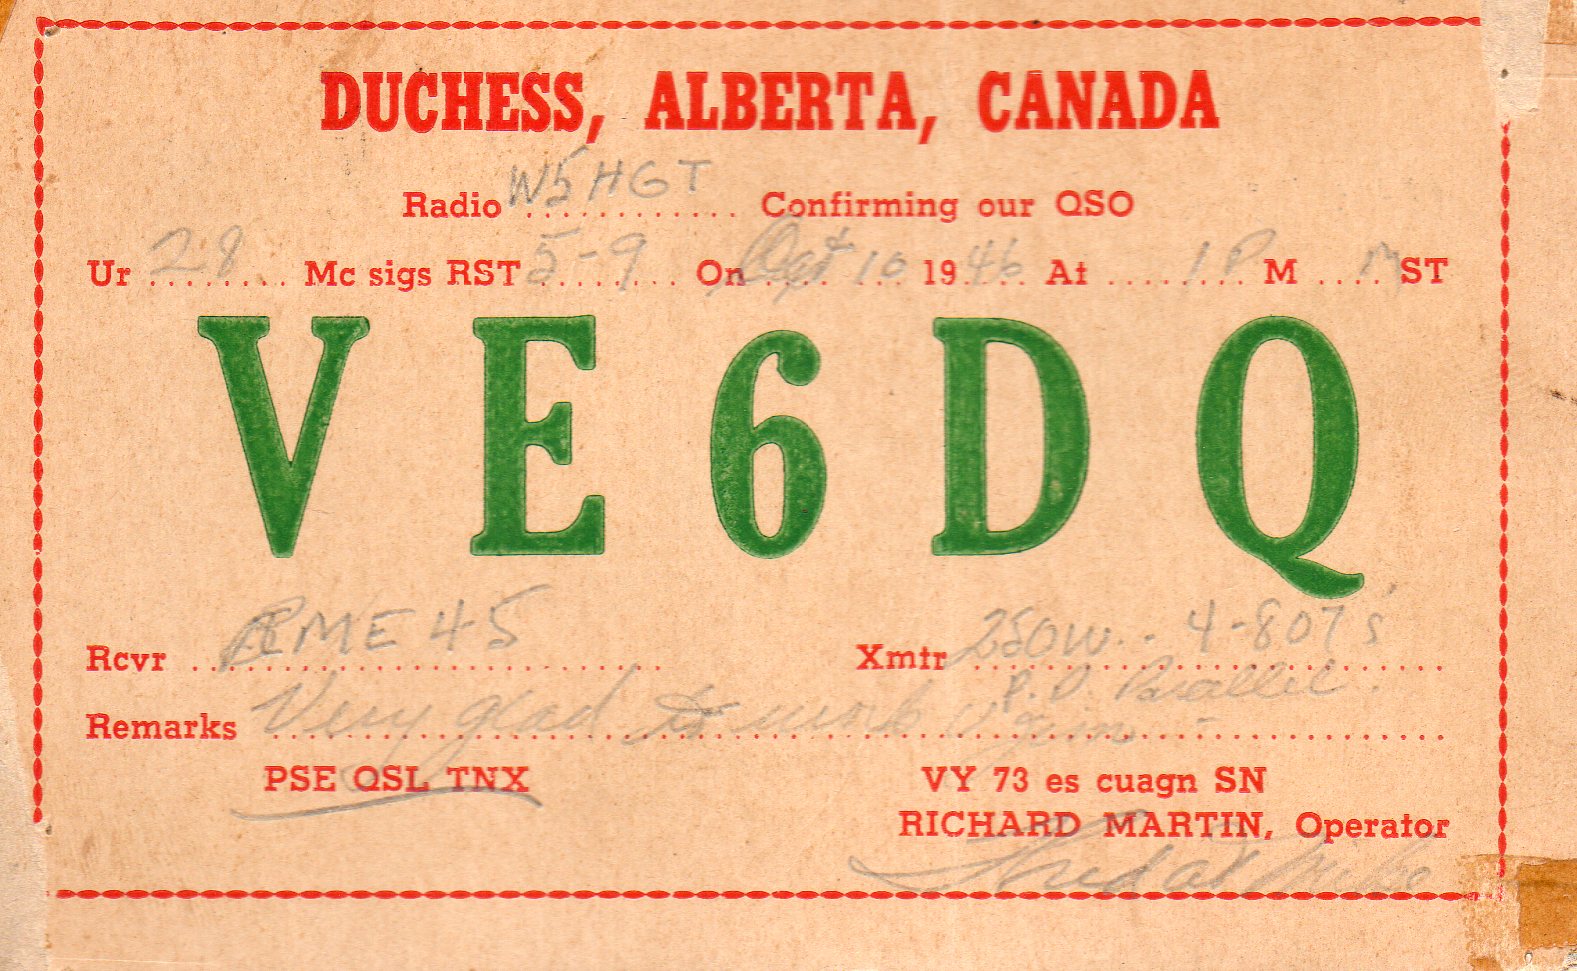 DUCHESS, ALBERTA, CANADA
Radio W5HGT Confirming our QSO
Ur 28 Mc sigs RST 5-9 On Oct 10 1946 At 1 P M M ST
VE6DQ
Rcvr RME 45 Xmtr 250W. - 4-807's
P.O.
Remarks Very glad to work U Jim -
PSE QSL TNX VY 73 es cuagn SN
RICHARD MARTIN, Operator